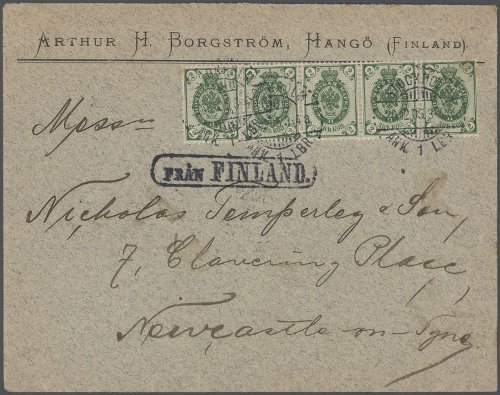 ARTHUR H. BORGSTRÖM, HANGÖ (FINLAND)
Messrs
FRÅN FINLAND.
Nicholas Temperley & Son,
7, Clavering Place,
Newcastle-on-Tyne